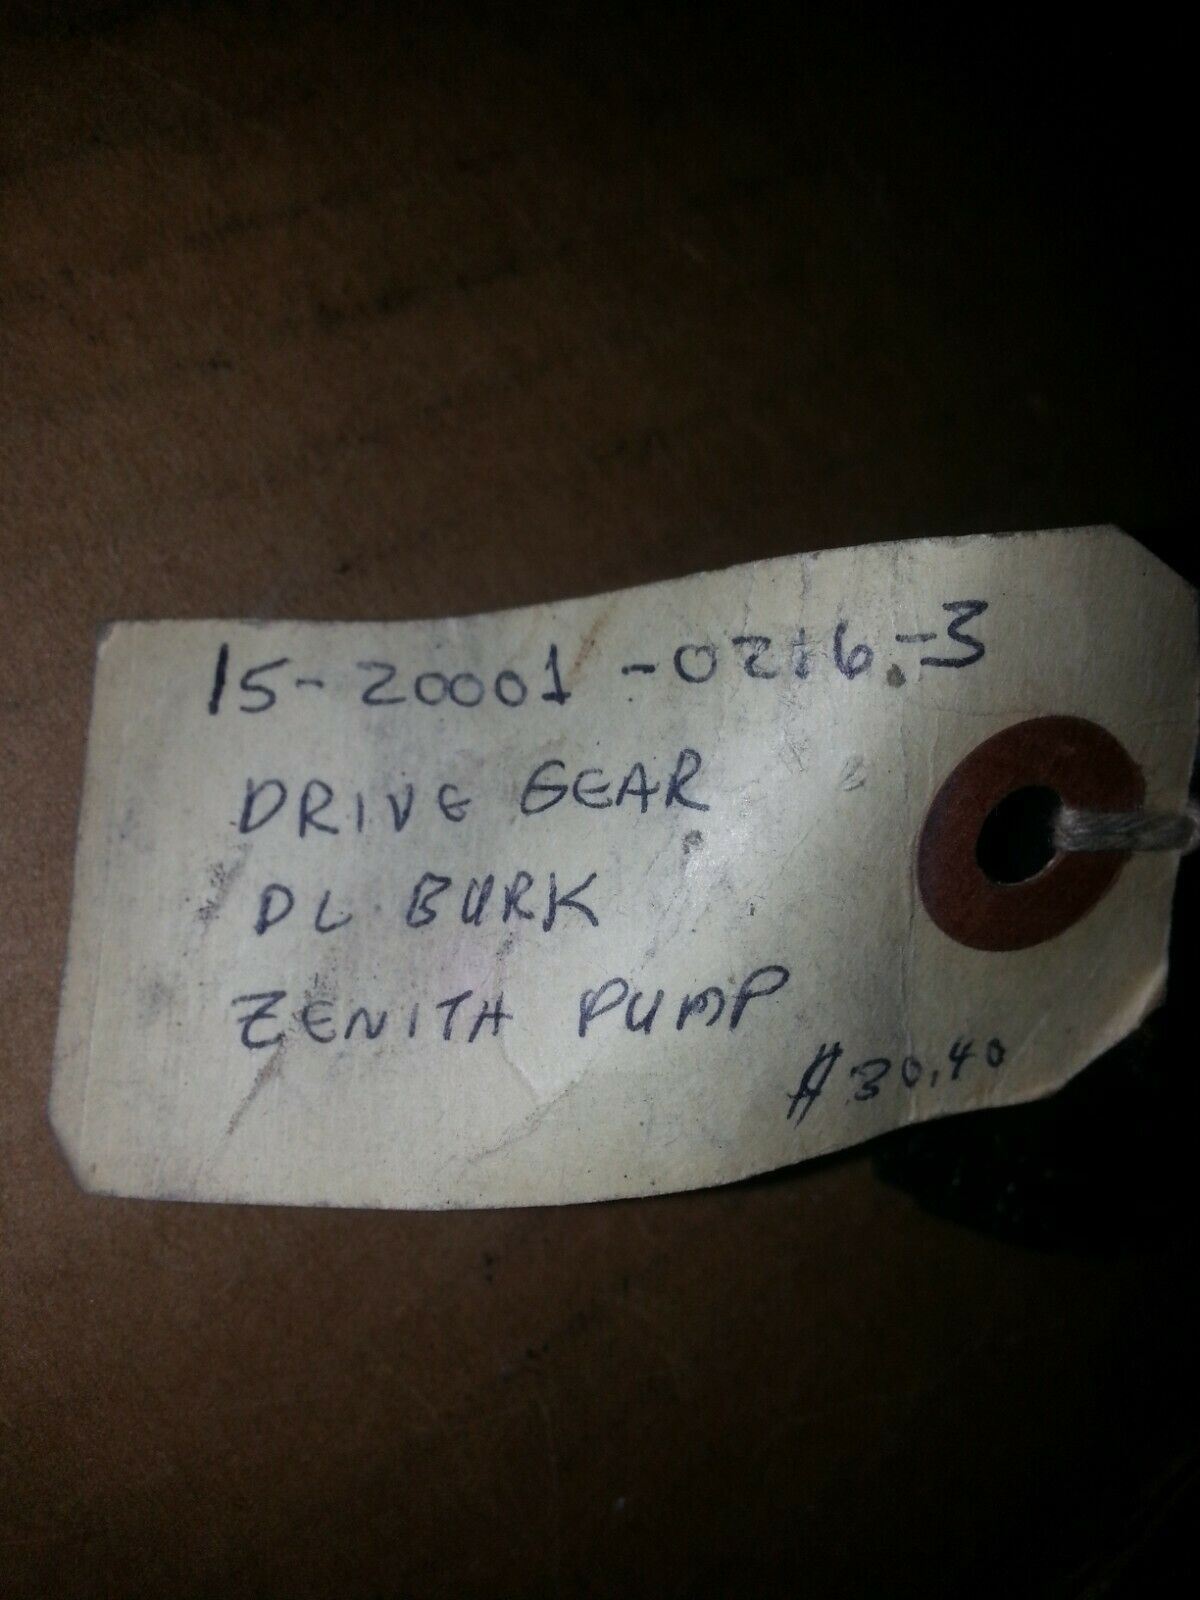 15-20001-0216-3
DRIVE GEAR
DL BURK
ZENITH PUMP
$30.40